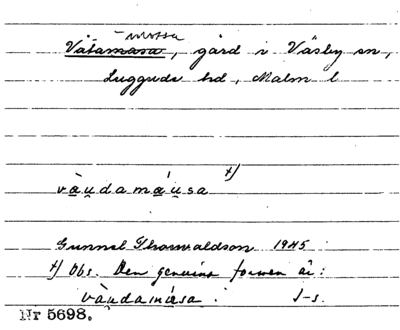 -mossa
Våtamosa, gård i Väsby sn,
Luggude hd, Malm l
+)
vạ̀ụdamạ́ụsa
Gunnel Thorvaldson 1945
+) Obs. Den genuina formen är:
vạ̀ụdamǽsa. J-s.
Nr 5698.